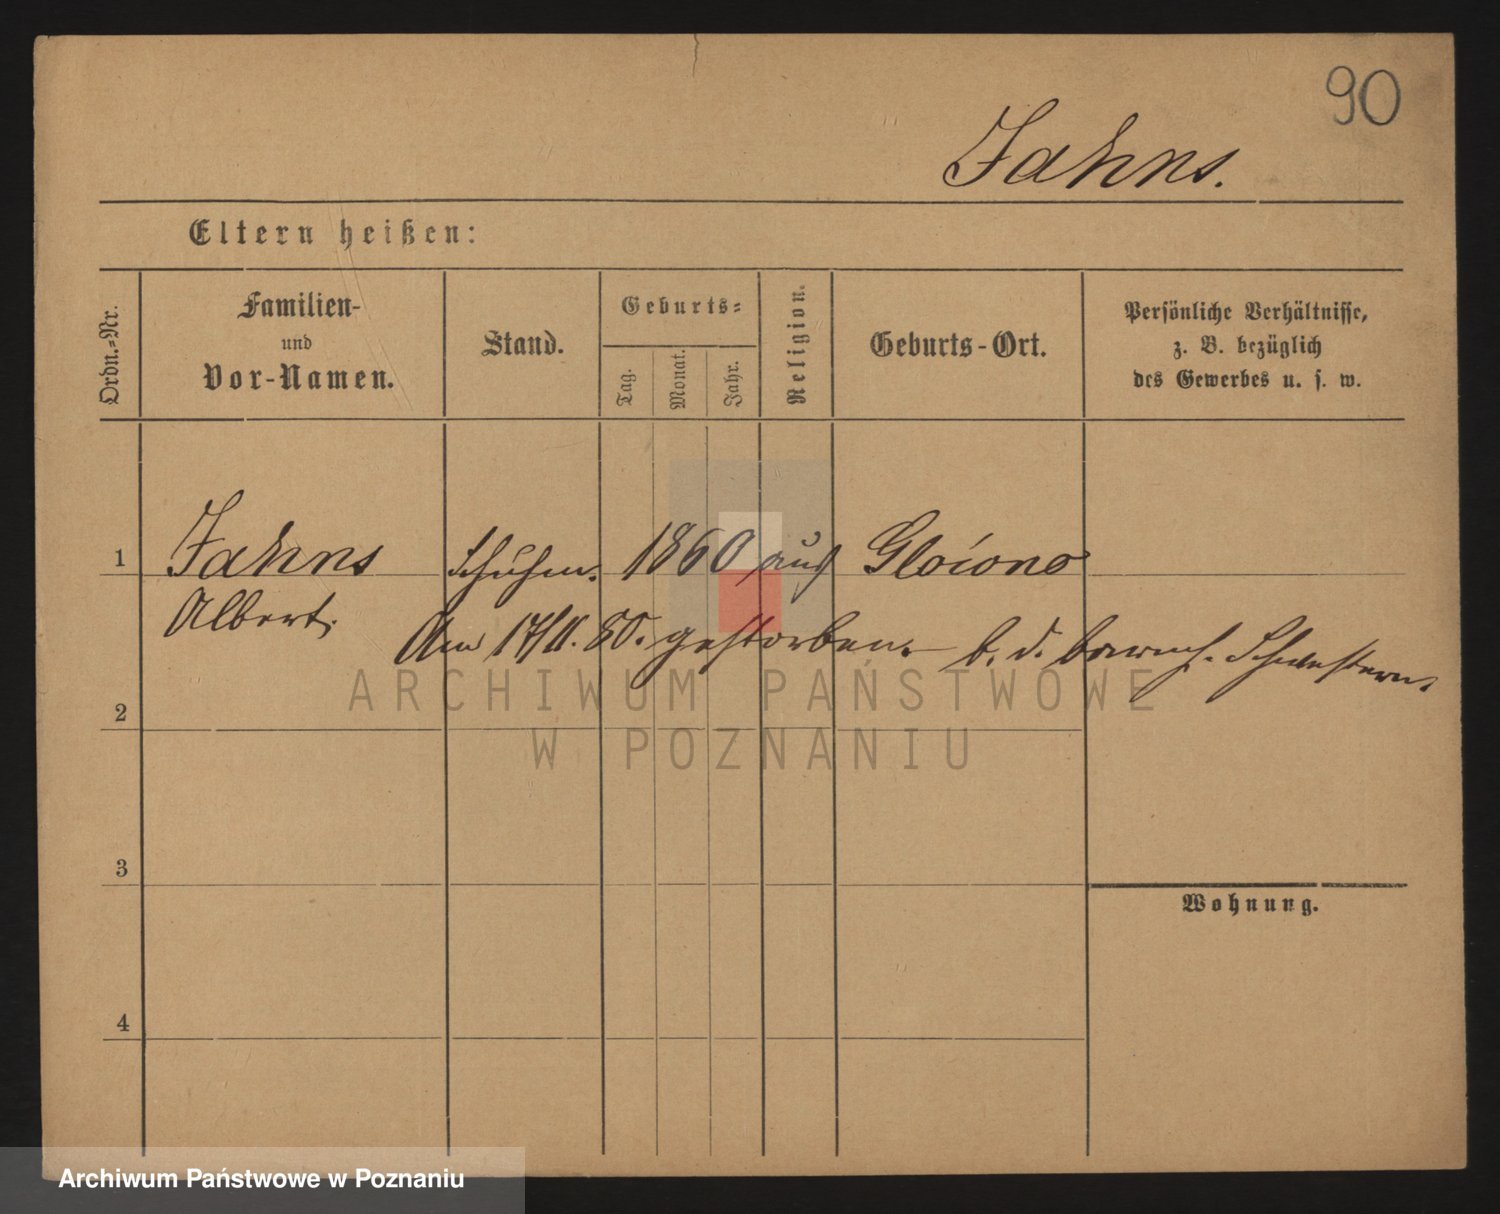 90
Jahns.
Eltern heißen:
Ordn.=Nr.
Familien-
und
Vor-Namen.
Stand.
Geburts=
Tag.
Monat.
Jahr.
Religion.
Geburts-Ort.
Persönliche Verhältnisse,
z. B. bezüglich
des Gewerbes u. s. w.
1
Jahns Schuhm. 1860 aus
Albert.
Am gestorben. b. d. barmh. Schwestern.
ARCHIWUM PAŃSTWOWE
W POZNANIU
2
3
Wohnung.
4
Archiwum Państwowe w Poznaniu